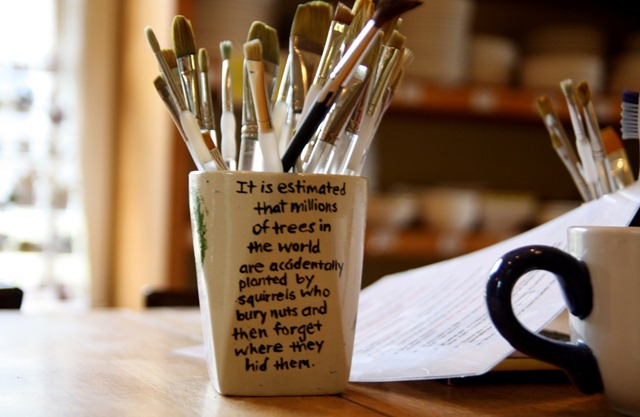 It is estimated
that millions
of trees in
the world
are accidentally
planted by
squirrels who
bury nuts and
then forget
where they
hid them.